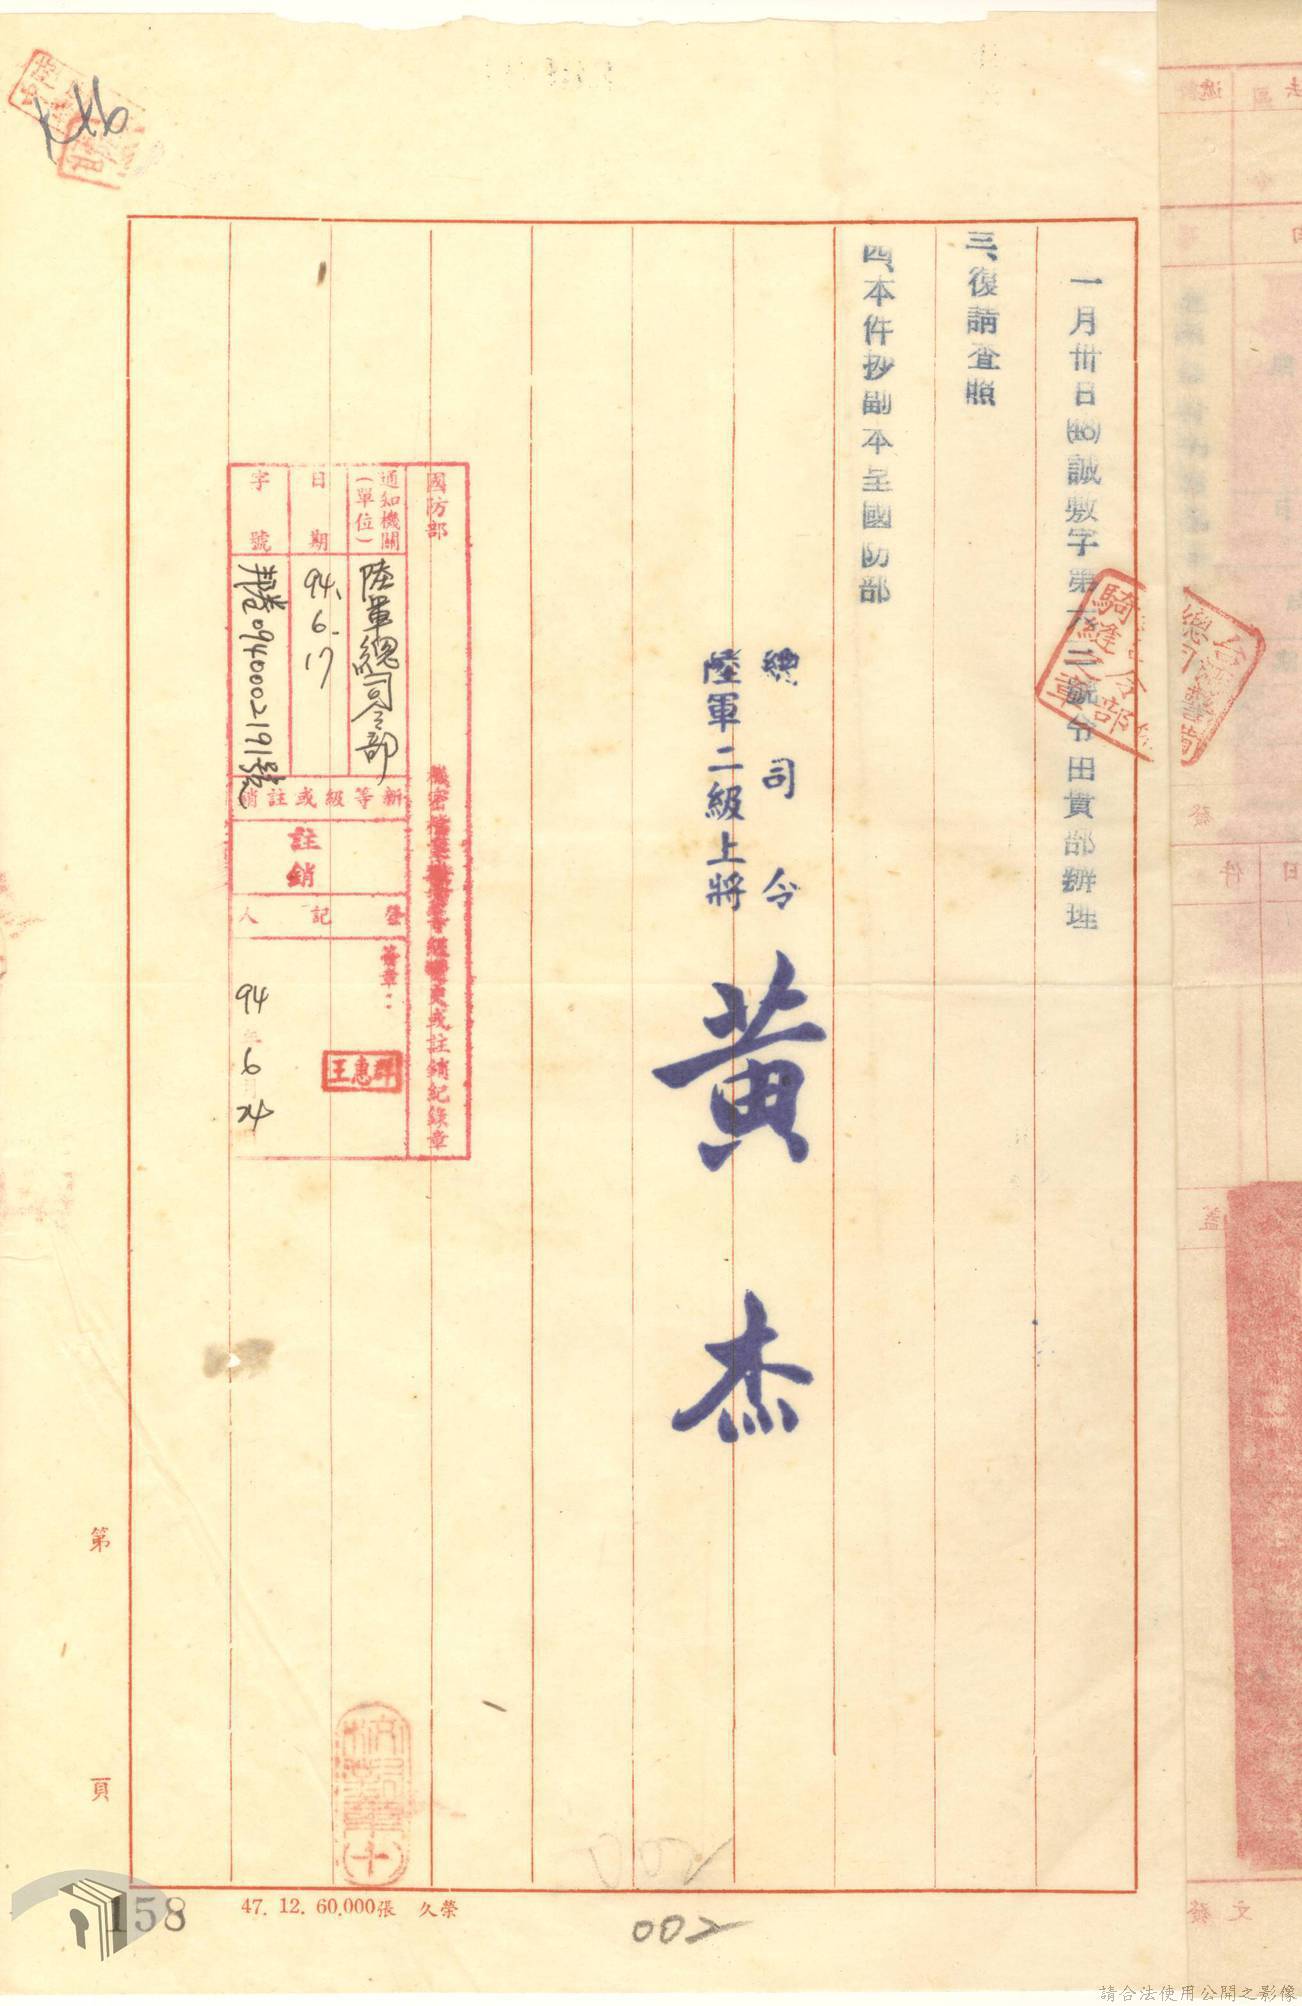 一月卅日(48)誠敷字第六三號令田貴部辦理
三、復請查照
四、本件抄副本呈國防部
總司令
陸軍二級上將
黃杰
騎縫之章
國防部
機密檔案機密等級變更或註銷紀錄章
通知機關(單位)
陸軍總司令部
日期
94.6.17
字號
0940002191號
新等級或註銷
註銷
登記人
簽章：
王惠群
94年6月24
(十)
第 頁
158
47. 12. 60,000張 久榮
002
002
請合法使用公開之影像